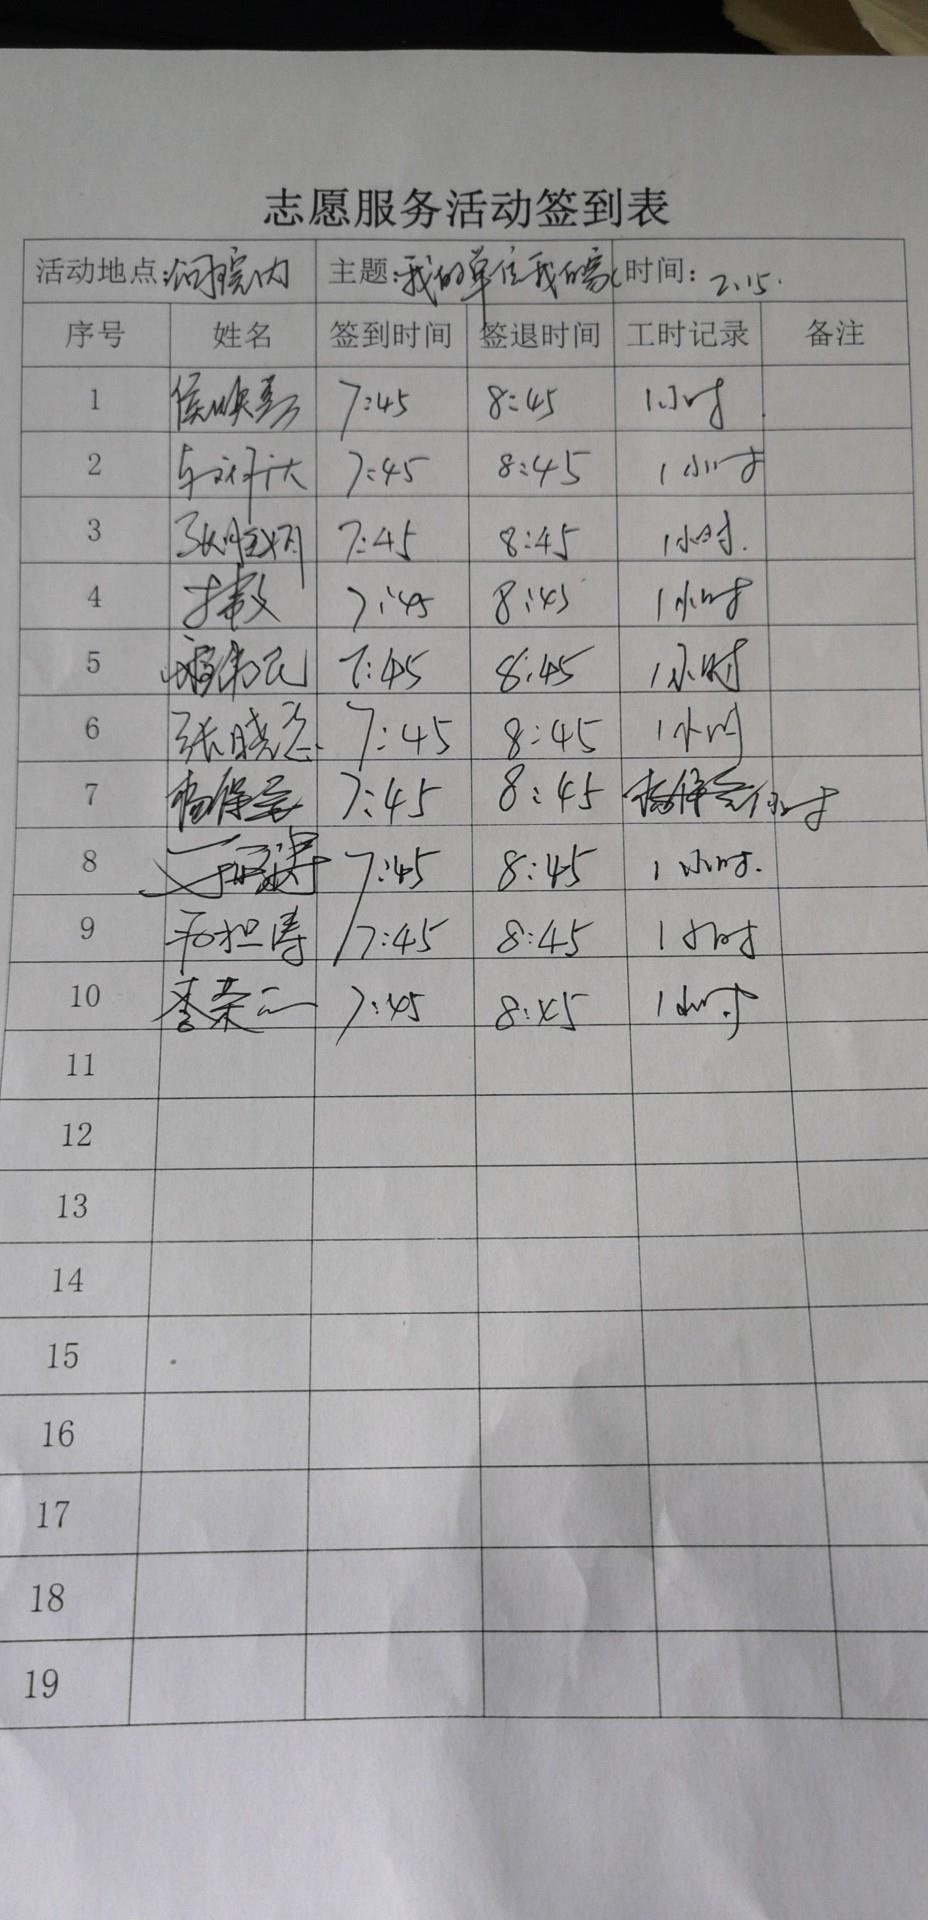 志愿服务活动签到表
活动地点: 院内 主题:我的单位我的家 时间: 2.15.
序号 姓名 签到时间 签退时间 工时记录 备注
1 7:45 8:45 1小时
2 7:45 8:45 1小时
3 7:45 8:45 1小时.
4 7:45 8:45 1小时
5 7:45 8:45 1小时
6 张晓 7:45 8:45 1小时
7 杨保 7:45 8:45 小时
8 7:45 8:45 1小时.
9 7:45 8:45 1小时
10 李荣 7:45 8:45 1小时
11
12
13
14
15
16
17
18
19